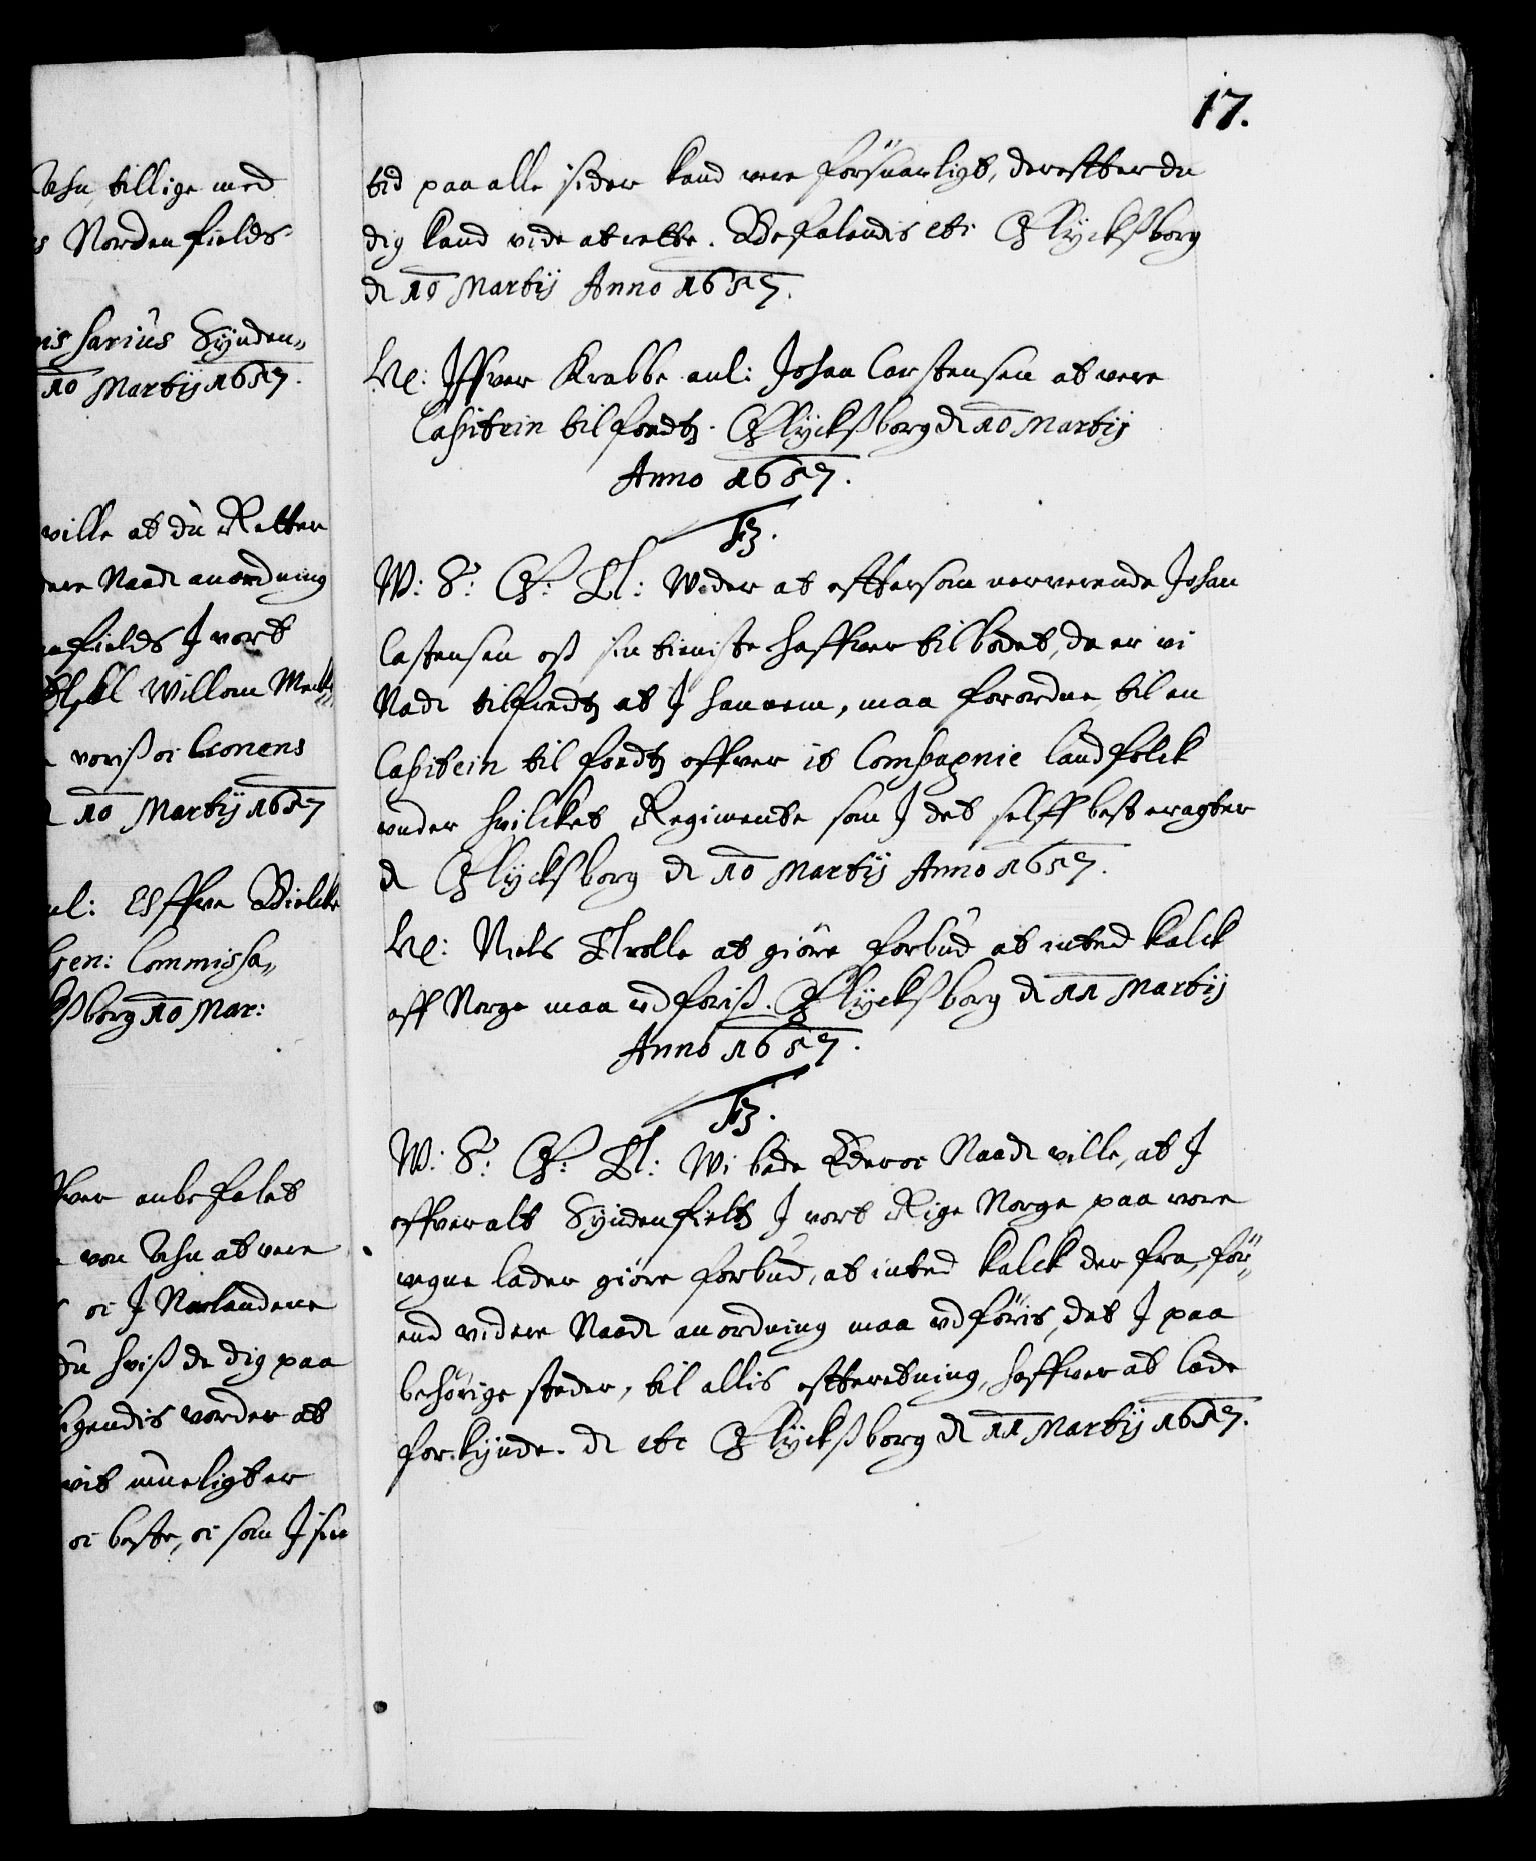 17.
Ahn, tillige med
s Nordenfields
is sarius Sÿnden„
10 Martij 1657.
ville at du Retter
dere Naadr anordning
nfields J vort
Willom
voriß oc Cronens
10 Martij 1657
nl: Effue Bielcke
Gen: Commissa„
ßborg 10 Mar:
fver anbefalet
von Ahn at vere
oc J Norlandene
du hviß de dig paa
egendis vorder at
vit mueligt er
oc beste, oc som J sin
tid paa alle sider kand vere forsuarligt, derefter du
dig kand vide at rette. Befalendis etc Glÿckßborg
d 10 Martij Anno 1657.
N: Jffver Krabbe anl: Johan Carstensen at vere
Capitein til foedtz. Glÿckßborg d 10 Martij
Anno 1657.
F3.
W: S: G: T: Wider at eftersom nerverende Johan
Castensen oß sin tieniste haffver tilbodet, da er vi
Nadr tilfredtz at J hannem, maa forordne til en
Capitein til foedtz offver it Compagnie landfolck
under huilcket Regimente som J det selff best eragter
d Glÿcksborg d 10 Martij Anno 1657.
N: Niels Trolle at giöre forbud at inted kalck
aff Norge maa udföriß. Glÿckßborg d 11 Martij
Anno 1657.
F3.
W: S: G: T: Wi bede Eder oc Naadr ville, at J
offveralt Sÿndenfieltz J vort Rige Norge paa vore
vegne lader giöre forbud, at inted kalck der fra, för„
end videre Naadr anordning maa udföris, det J paa
behörige steder, til allis efterretning, haffver at lade
forkÿnde. d etc Glÿckßborg d 11 Martij 1657.